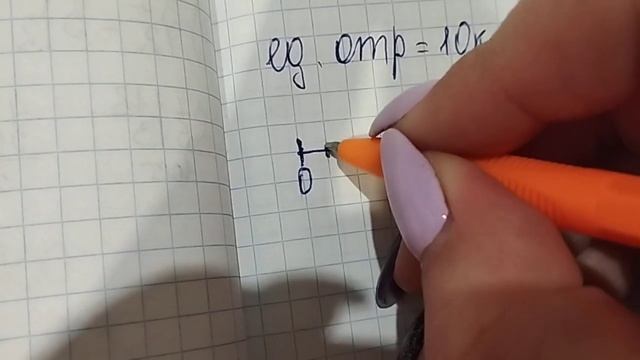 ед. отр = 10к
0